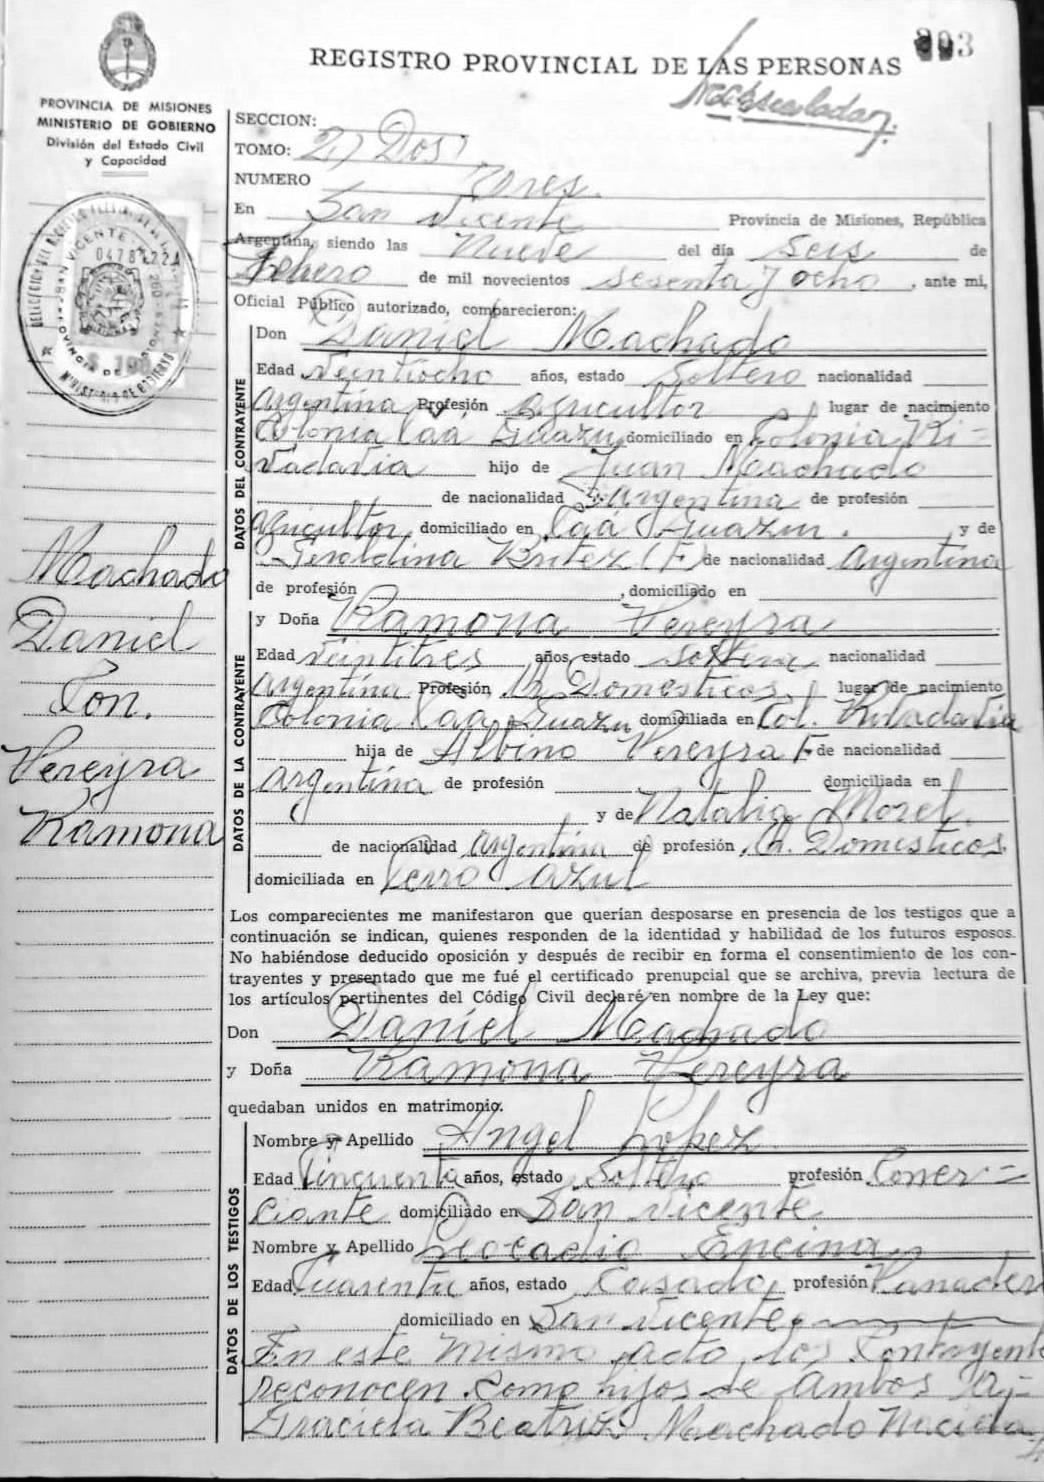 REGISTRO PROVINCIAL DE LAS PERSONAS
3
PROVINCIA DE MISIONES
MINISTERIO DE GOBIERNO
División del Estado Civil
y Capacidad
SECCION:
TOMO: 2) Dos)
NUMERO Tres.
En San Vicente Provincia de Misiones, República
Argentina, siendo las Nueve del día Seis de
Febrero de mil novecientos sesenta y ocho, ante mi,
Oficial Público autorizado, comparecieron:
DATOS DEL CONTRAYENTE
Don Daniel Machado
Edad Veintiocho años, estado Soltero nacionalidad
Argentina Profesión agricultor lugar de nacimiento
Colonia Caá Guazu domiciliado en Colonia Ri-
vadavia hijo de Juan Machado
de nacionalidad Argentina de profesión
Agricultor, domiciliado en Caá Guazu. y de
Britez (F) de nacionalidad argentina
de profesión , domiciliado en
DATOS DE LA CONTRAYENTE
y Doña Ramona Pereyra
Edad Veintitres años, estado Soltera nacionalidad
Argentina Profesión Q. Domesticos, lugar de nacimiento
Colonia Caá Guazu domiciliada en Col. Rivadavia
hija de Albino Pereyra F de nacionalidad
Argentina de profesión domiciliada en
y de Natalia Morel.
de nacionalidad argentina de profesión, Q. Domesticos
domiciliada en Cerro Azul
Machado
Daniel
Con.
Pereyra
Ramona
Los comparecientes me manifestaron que querían desposarse en presencia de los testigos que a
continuación se indican, quienes responden de la identidad y habilidad de los futuros esposos.
No habiéndose deducido oposición y después de recibir en forma el consentimiento de los con-
trayentes y presentado que me fué el certificado prenupcial que se archiva, previa lectura de
los artículos pertinentes del Código Civil declaré en nombre de la Ley que:
Don Daniel Machado
y Doña Ramona Pereyra
quedaban unidos en matrimonio.
DATOS DE LOS TESTIGOS
Nombre y Apellido Angel Lopez
Edad Cincuenta años, estado Soltero profesión Comer-
ciante domiciliado en San Vicente
Nombre y Apellido Leocadio Encina,
Edad Cuarenta años, estado Casado, profesión Panadero
domiciliado en San Vicente
En este mismo acto los Contrayente
reconocen como hijos de ambos a:-
Graciela Beatriz Machado Nacida